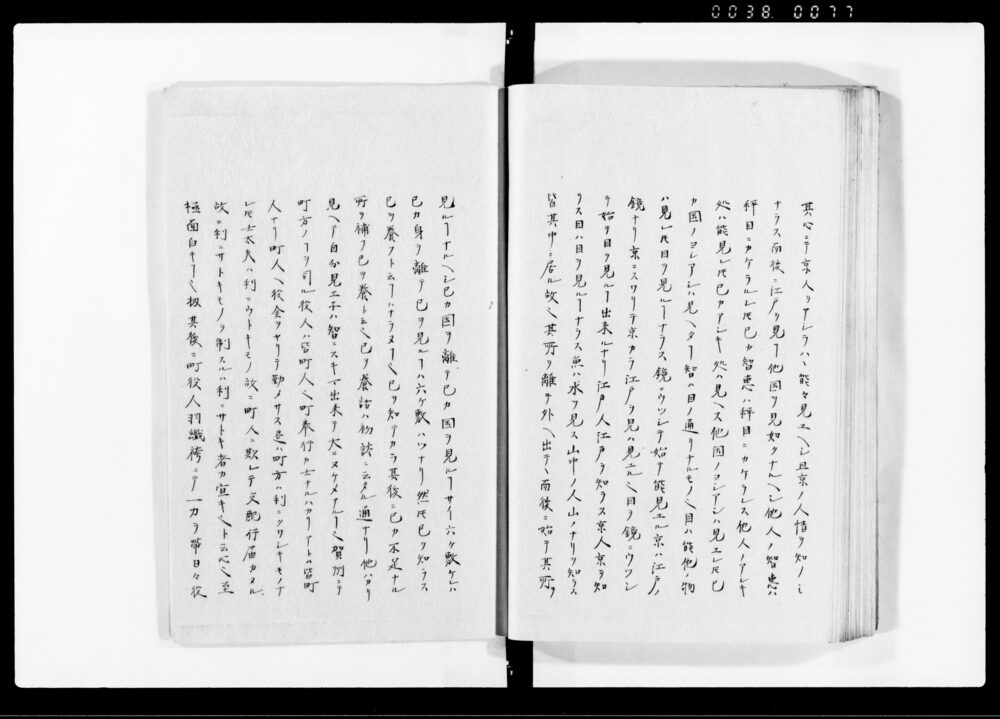 0038 0077
其心ニテ京人ヲアシラハヽ能々見エヘシ且京ノ人情ヲ知ノミ
ナラス而後ニ江戸ヲ見ヿ他国ヲ見如クナルヘシ他人ノ智恵ハ
秤目ニカケラルレ𪜈己カ智恵ハ秤目ニカケラレス他人ノアシキ
処ハ能見レ𪜈己カアシキ処ハ見ヘス他国ノヨシアシハ見エレ𪜈己
カ国ノヨシアシハ見ヘヌヿ智ハ目ノ通リナルモノ也目ハ能他ノ物
ハ見レ𪜈目ヲ見ルヿナラス鏡ニウツシテ始テ能見エル京ハ江戸ノ
鏡ナリ京ニスワリテ京カラ江戸ヲ見ハ見エル也目ヲ鏡ニウツシ
テ始テ目ヲ見ルヿ出来ルナリ江戸人江戸ヲ知ラス京人京ヲ知
ラス目ハ目ヲ見ルヿナラス魚ハ水ヲ見ス山中ノ人山ノナリヲ知ラス
皆其中ニ居ル故也其所ヲ離テ外ヘ出テヽ而後ニ始テ其所ヲ
見ルヿナルヘシ己カ国ヲ離テ己カ国ヲ見ルサイ六ケ敷ケレハ
己カ身ヲ離テ己ヲ見ルヿハ六ケ敷ハツナリ然𪜈己ヲ知ラス
己ヲ養フト云ヿハナラヌヿ也己ヲ知テカラ其後ニ己カ不足ナル
所ヲ補フ己ヲ養ト云也己ヲ養話ハ初談ニ云タル通ナリ他ハカリ
見ヘテ自分見エ子ハ智ニスキマ出来テ大ニヌケメアルヿ也賀州ニテ
町方ノヿヲ司ル役人ハ皆町人也町奉行カ士ナルハカリアトハ皆町
人ナリ町人ヘ役金ヲヤリテ勤メサス是ハ町方ハ利ニクワシキモノナ
レ𪜈士太夫ハ利ニウトキモノ故ニ町人ニ欺レテ支配行届カヌル
故ニ利ニサトキモノヲ制スルハ利ニサトキ者カ宜キ也ト云心也至
極面白キヿ也扨其後ニ町役人羽織袴ニテ一カラ帯日々役